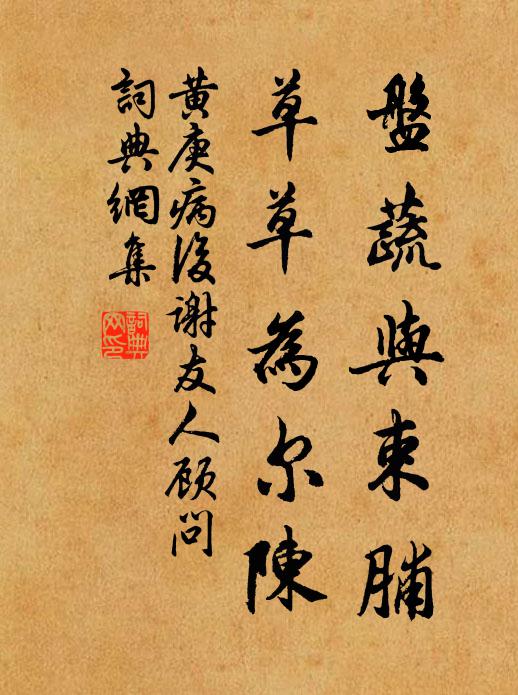 盤蔬與束脯
草草為尔陳
黄庚病後謝友人顧問
詞典網集
詞典网印